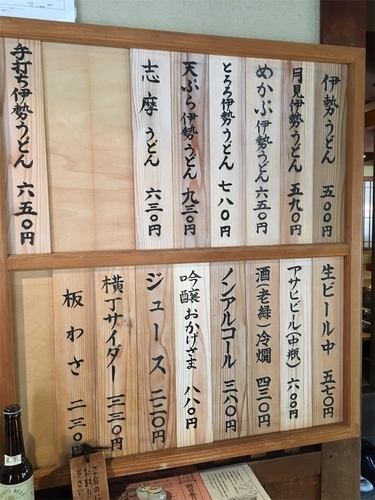 伊勢うどん 五〇〇円
月見伊勢うどん 五九〇円
めかぶ伊勢うどん 六五〇円
とろろ伊勢うどん 七八〇円
天ぷら伊勢うどん 九三〇円
志摩うどん 六三〇円
手打ち伊勢うどん 六五〇円
生ビール中 五七〇円
アサヒビール(中瓶) 六〇〇円
酒(老緑)冷燗 四三〇円
ノンアルコール 三八〇円
吟醸おかげさま 八八〇円
ジュース 二二〇円
横丁サイダー 三三〇円
板わさ 二三〇円